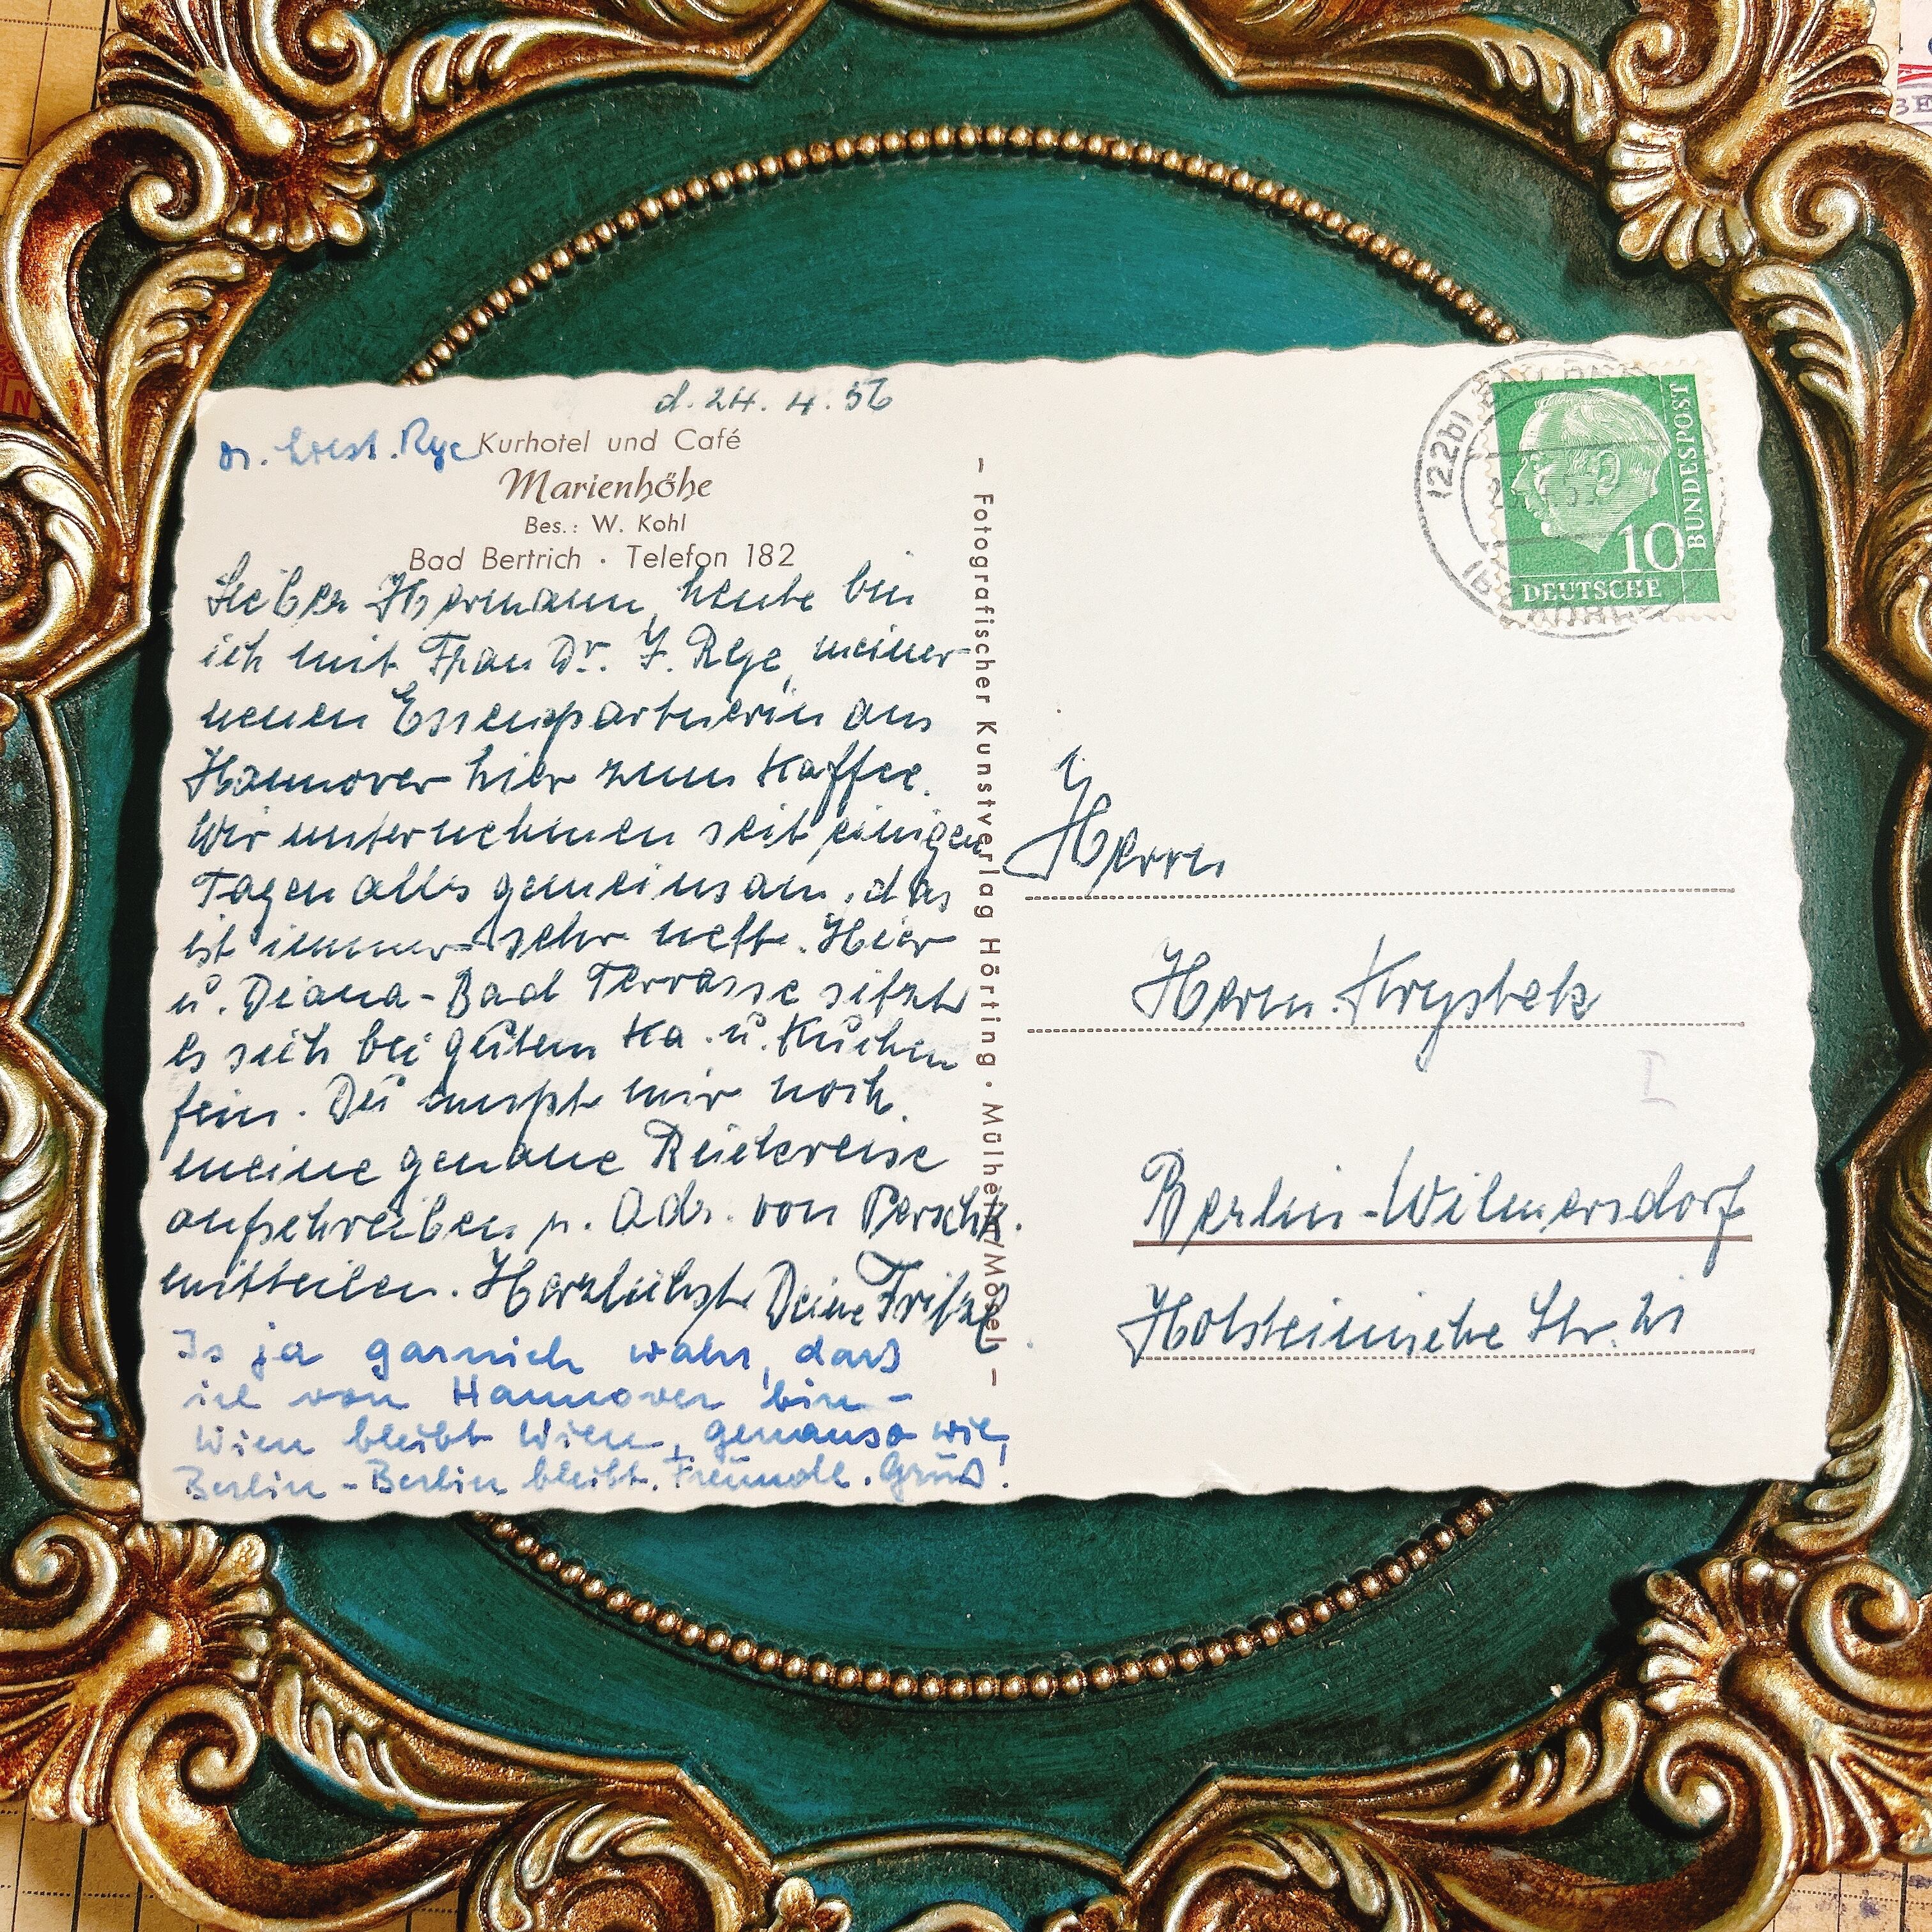 d. 24. 4. 56
Dr. Rye
Kurhotel und Café
Marienhöhe
Bes.: W. Kohl
Bad Bertrich · Telefon 182
Lieber Hermann, heute bin
ich mit Frau Dr. J. Rye, meiner
neuen Essenpartnerin aus
Hannover hier zum Kaffee.
Wir unternehmen seit einigen
Tagen alles gemeinsam, das
ist immer sehr nett. Hier
u. Diana-Bad Terrasse sitzt
es sich bei gutem Ka. u. Kuchen
fein. Du mußt mir noch
meine genaue Rückreise
aufschreiben u. Adr. von Persch.
mitteilen. Herzlichst Deine Fritzl
Is ja garnich wahr, dass
ich von Hannover bin -
Wien bleibt Wien, genauso wie
Berlin - Berlin bleibt. Freundl. Gruß!
– Fotografischer Kunstverlag Hörting · Mülheim/Mosel –
(22b)
10
DEUTSCHE
BUNDESPOST
Herrn
Herm. Krystek
Berlin-Wilmersdorf
Holsteinische Str. 21